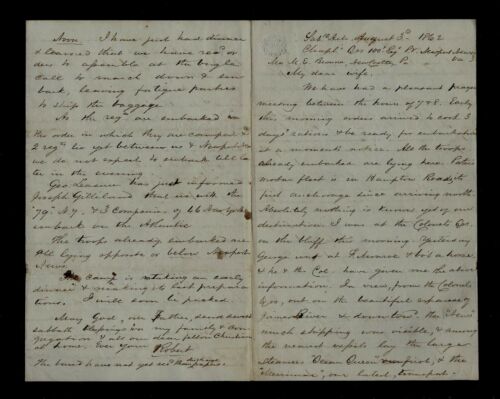 Sabbath, August 3d, 1862
Chapl. Qrs 100" Regt Pv. Newport News
Va
Mrs M. E. Browne, New Castle, Pa
My dear wife,
We have had a pleasant prayer
meeting between the hours of 7 & 8. Early
this morning orders arrived to cook 3
days' rations & be ready for embarkation
at a moments notice. All the troops
already embarked are lying here.
fleet is in Hampton Roads, its
first anchorage since arriving north.
Absolutely nothing is known yet of our
destination. I was at the Colonels Qrs.
on the bluff this morning. Yesterday
George was at F. Monroe & bot a horse,
& he & the Col. have given me the above
information. In view, from the Colonels
Qrs, out on the beautiful expanse of
James River & down toward the
much shipping was visible, & among
the nearest vessels lay the large
steamers "Ocean Queen" & the
"Merrimac", our late transport.
Noon. I have just had dinner
& learned that we have recd or-
ders to assemble at the bugle
call to march down & em
bark, leaving fatigue parties
to ship the baggage.
As the regts are embarked in
the order in which they are camped &
2 regts lie yet between us & Newport News
we do not expect to embark till la-
ter in the evening.
Geo. Leasure has just informed
Joseph Gilliland that we with the
79" N.Y. & 3 Companies of 46 New York
embark on the Atlantic
The troops already embarked are
still lying opposite or below Newport
News.
The camp is making an early
dinner & making its last prepara
tions. I will soon be packed.
May God, our Father, send sweet
sabbath blessings on my family & con
gregation & all our dear fellow Christians
at home. Ever yours
Robert
The band have not yet recd discharge
papers.